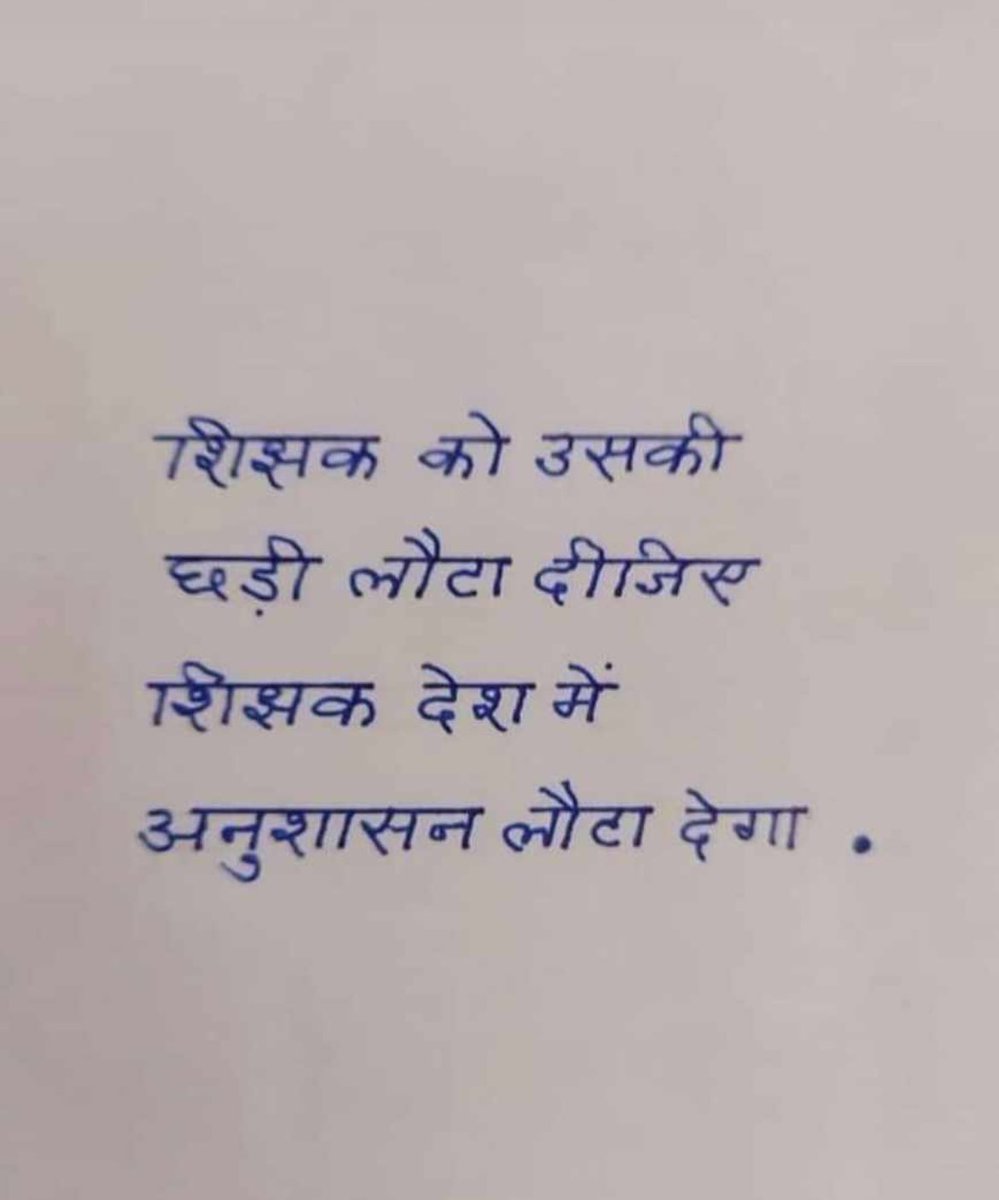 शिक्षक को उसकी
छड़ी लौटा दीजिए
शिक्षक देश में
अनुशासन लौटा देगा .